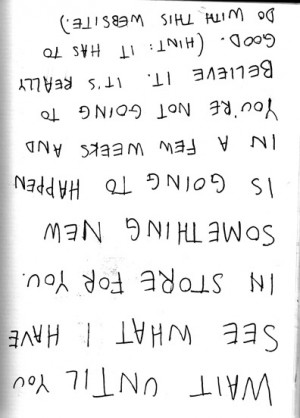 WAIT UNTIL YOU
SEE WHAT I HAVE
IN STORE FOR YOU.
SOMETHING NEW
IS GOING TO HAPPEN
IN A FEW WEEKS AND
YOU'RE NOT GOING TO
BELIEVE IT. IT'S REALLY
GOOD. (HINT: IT HAS TO
DO WITH THIS WEBSITE.)